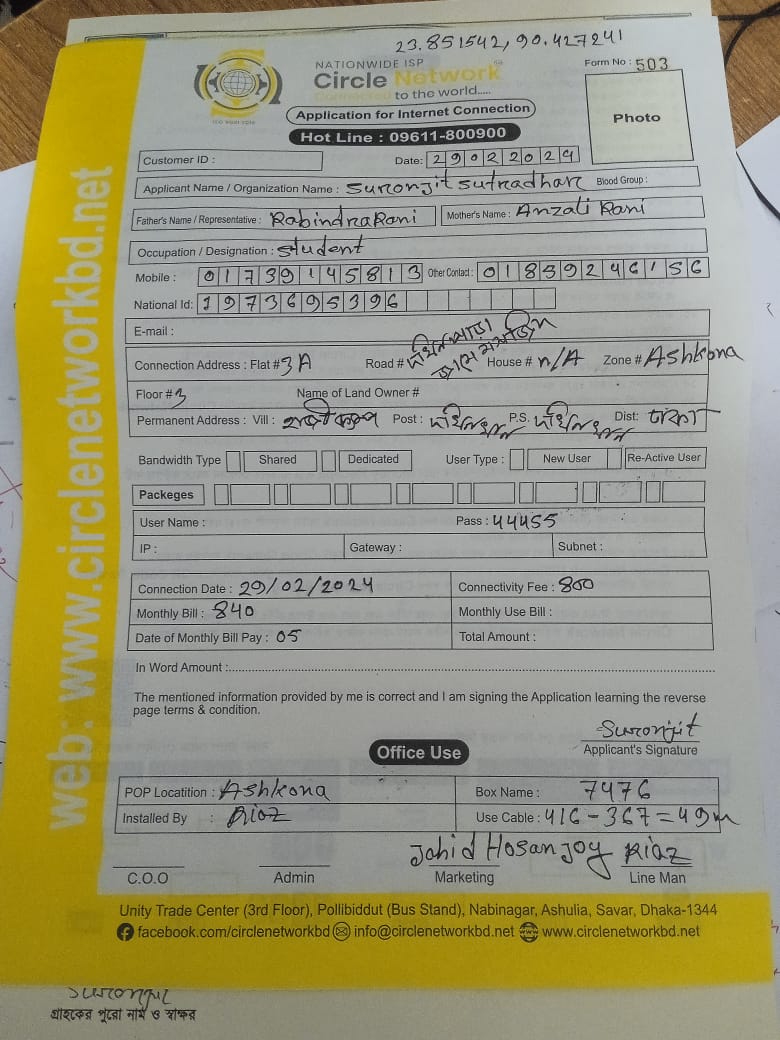 23.851542, 90.427241
NATIONWIDE ISP
Circle Network
Connected to the world.....
Form No : 503
Application for Internet Connection
Hot Line : 09611-800900
Photo
Customer ID :
Date: 29022024
Applicant Name / Organization Name : Suronjit sutradhar Blood Group :
Father's Name / Representative : Rabindra Rani Mother's Name : Anzali Rani
Occupation / Designation : student
Mobile : 01739145813 Other Contact : 01839246156
National Id: 1973695396
E-mail :
Connection Address : Flat # 3A Road # House # n/A Zone # Ashkona
Floor # 3 Name of Land Owner #
Permanent Address : Vill : Post : P.S. Dist: ঢাকা
Bandwidth Type Shared Dedicated User Type : New User Re-Active User
Packeges
User Name : Pass : 44455
IP : Gateway : Subnet :
Connection Date : 29/02/2024 Connectivity Fee : 800
Monthly Bill : 840 Monthly Use Bill :
Date of Monthly Bill Pay : 05 Total Amount :
In Word Amount :
The mentioned information provided by me is correct and I am signing the Application learning the reverse
page terms & condition.
Suronjit
Applicant's Signature
Office Use
POP Locatition : Ashkona Box Name : 7476
Installed By : Riaz Use Cable : 416 - 367 = 49m
Jahid Hosan Joy Riaz
C.O.O Admin Marketing Line Man
Unity Trade Center (3rd Floor), Pollibiddut (Bus Stand), Nabinagar, Ashulia, Savar, Dhaka-1344
facebook.com/circlenetworkbd info@circlenetworkbd.net www.circlenetworkbd.net
web: www.circlenetworkbd.net
Suronjit
গ্রাহকের পুরো নাম ও স্বাক্ষর